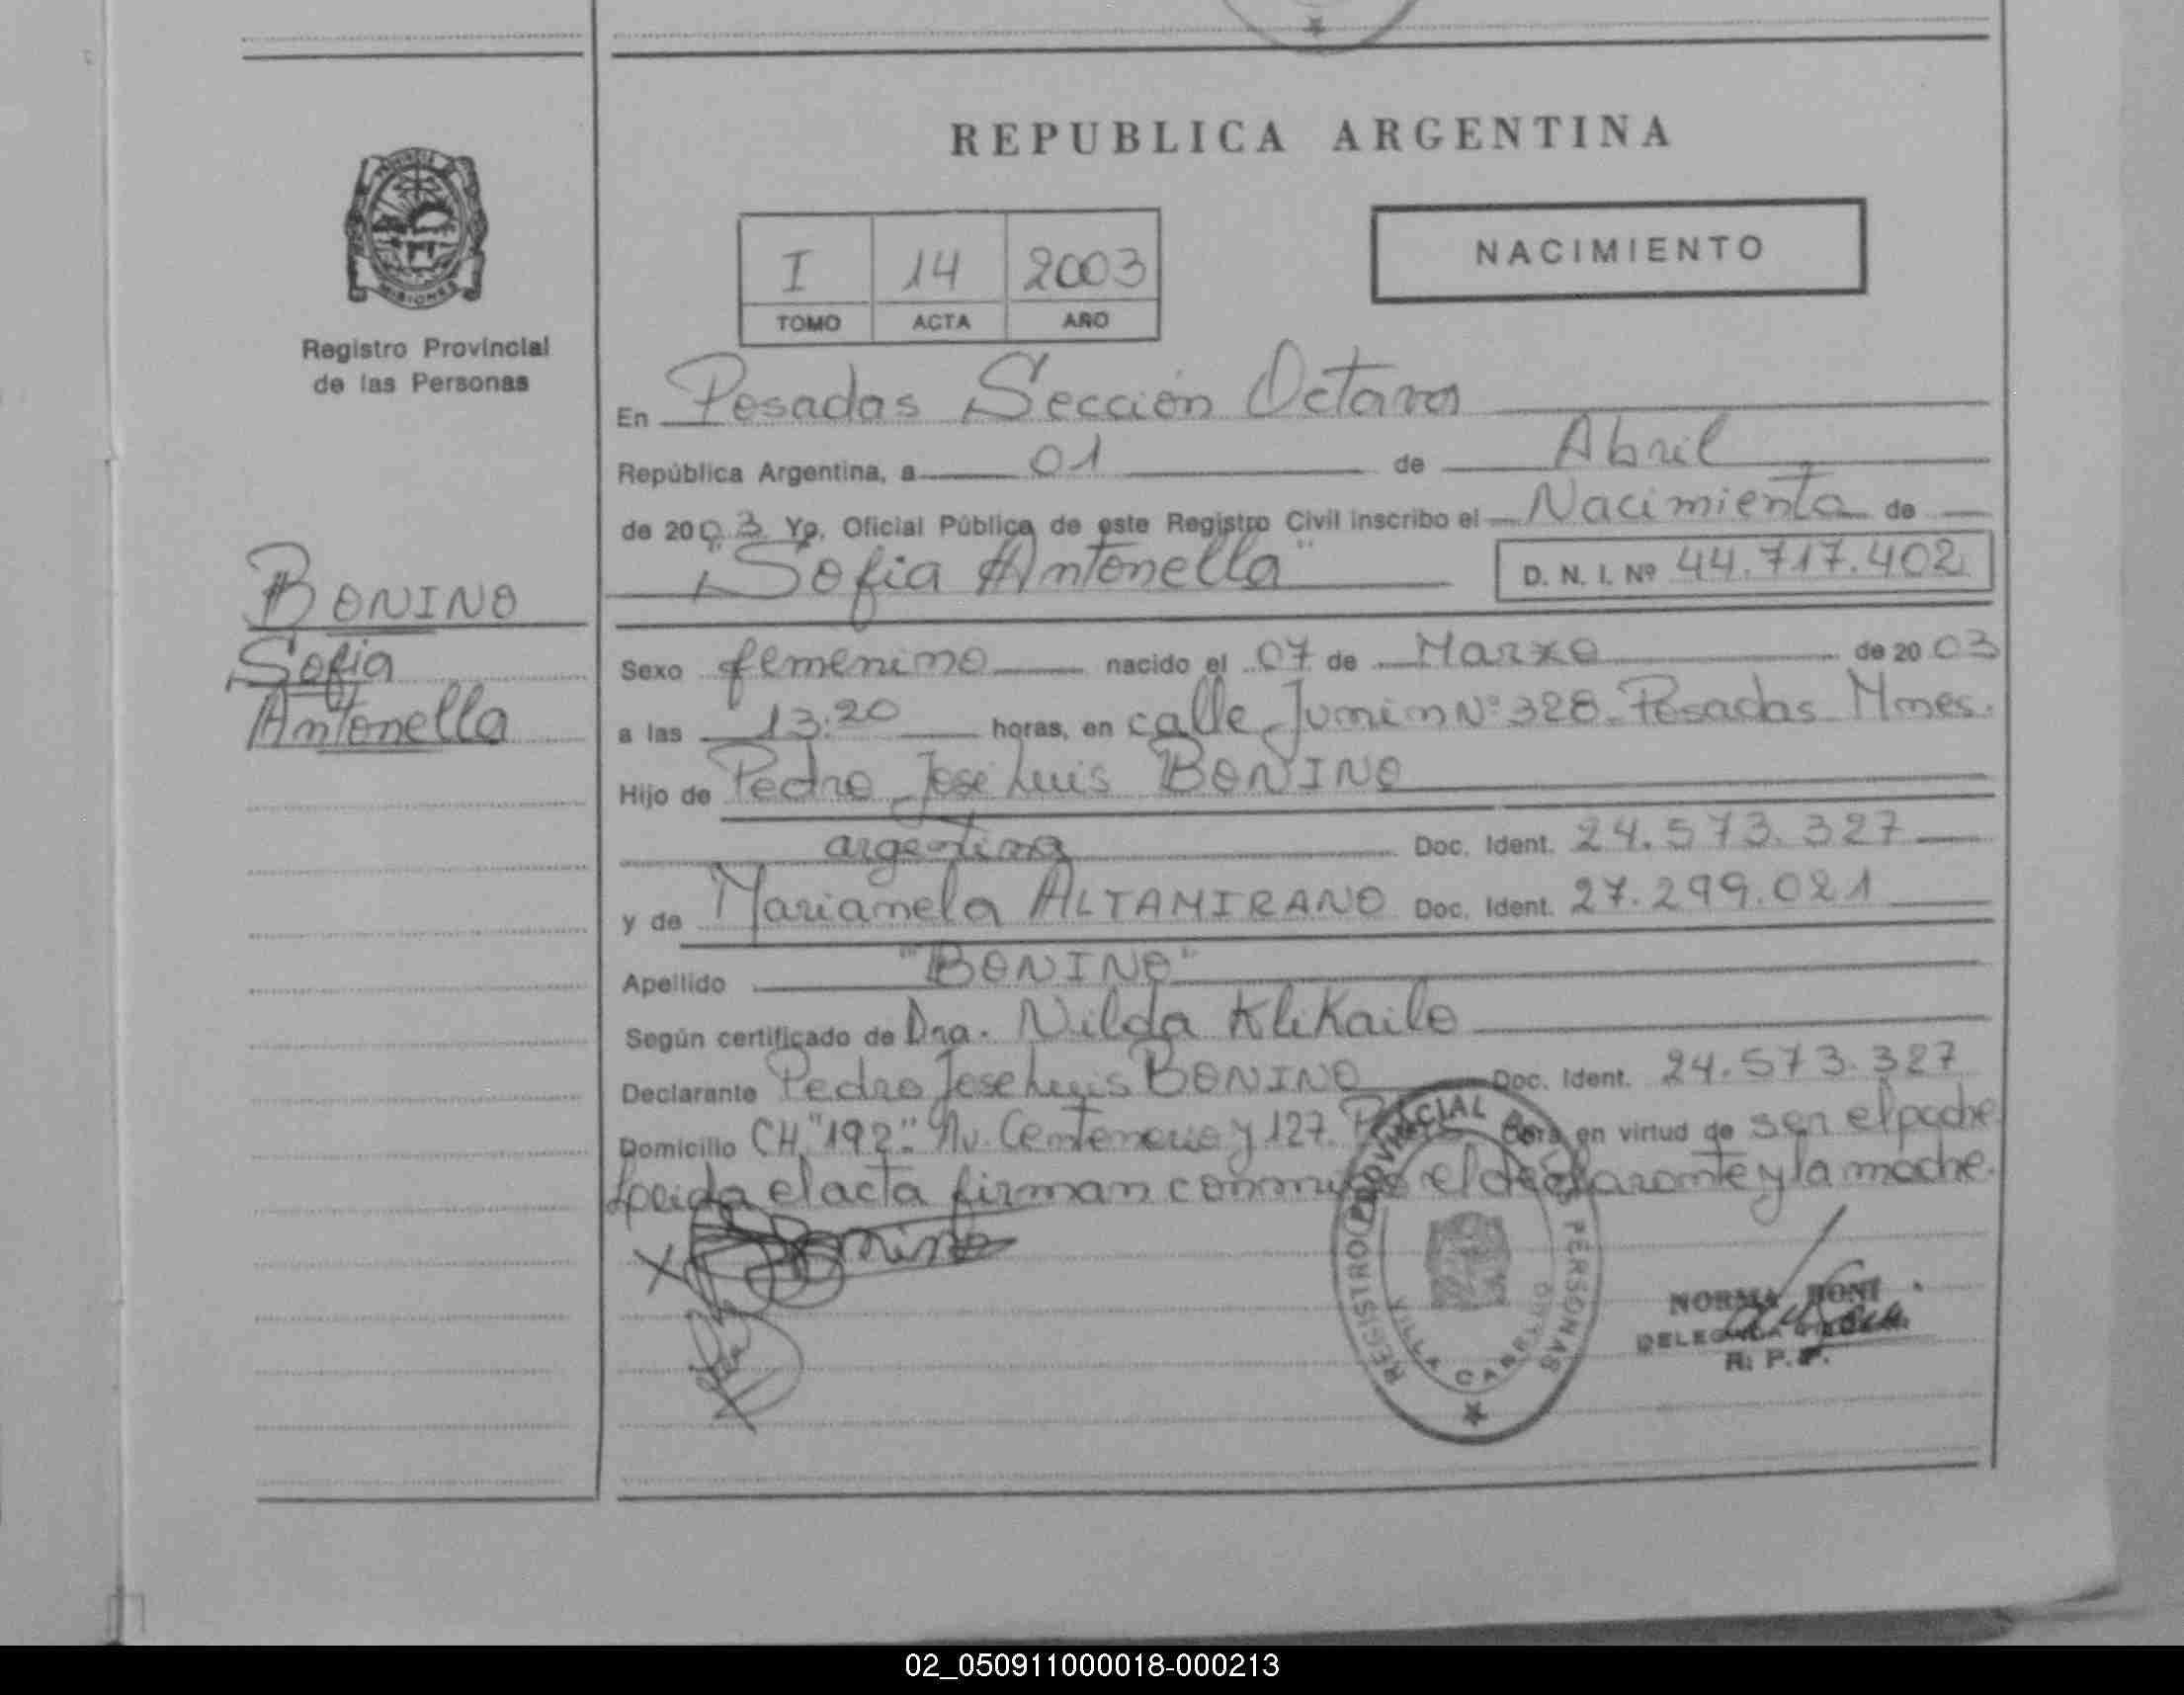 REPUBLICA ARGENTINA
PROVINCIA
MISIONES
Registro Provincial
de las Personas
I 14 2003
TOMO ACTA AÑO
NACIMIENTO
En Posadas Sección Octava
República Argentina, a 01 de Abril
de 2003 Yo, Oficial Público de este Registro Civil inscribo el Nacimiento de
"Sofia Antonella" D. N. I. Nº 44.717.402
BONINO
Sofia
Antonella
Sexo femenino nacido el 07 de Marzo de 20 03
a las 13:20 horas, en calle Junin Nº 328 - Posadas Mnes.
Hijo de Pedro José Luis BONINO
argentina Doc. Ident. 24.573.327
y de Marianela ALTAMIRANO Doc. Ident. 27.299.021
Apellido "BONINO"
Según certificado de Dra. Nilda Klekailo
Declarante Pedro Jose Luis BONINO Doc. Ident. 24.573.327
Domicilio CH. "192". Av. Centenario y 127. en virtud de ser el padre
Leida el acta firman conmigo el declarante y la madre.
X Bonino
REGISTRO PROVINCIAL DE LAS PERSONAS
VILLA CABELLO
NORMA BONI
DELEGADA
R. P. P.
02_050911000018-000213